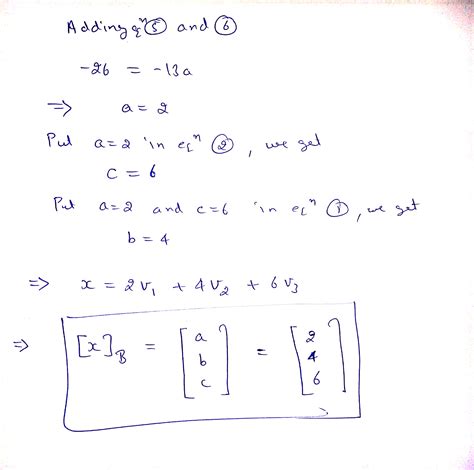 Adding eqⁿ ⑤ and ⑥
-26 = -13a
⇒ a = 2
Put a=2 in eqⁿ ②, we get
c = 6
Put a=2 and c=6 in eqⁿ ①, we get
b = 4
⇒ x = 2v₁ + 4v₂ + 6v₃
⇒ [x]_B = [a b c] = [2 4 6]